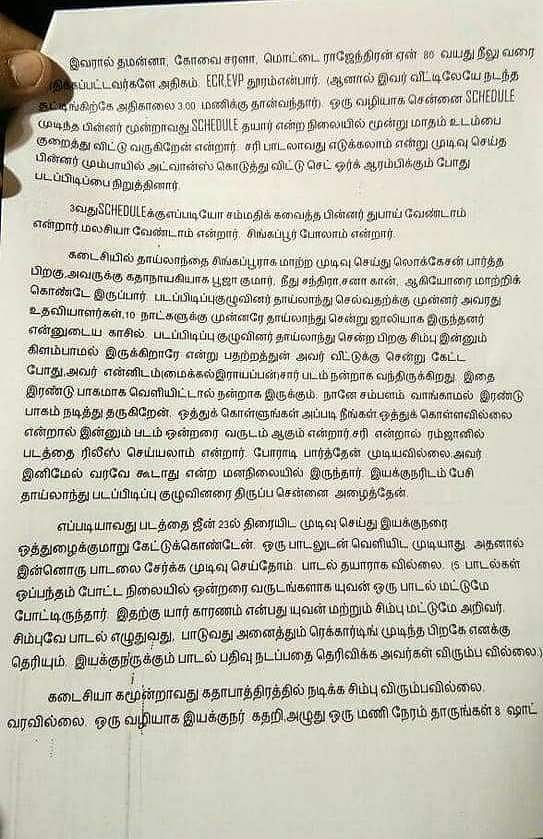 இவரால் தமன்னா, கோவை சரளா, மொட்டை ராஜேந்திரன் ஏன் 80 வயது நீலு வரை
பட்டவர்களே அதிகம். ECR,EVP தூரம்என்பார். (ஆனால் இவர் வீட்டிலேயே நடந்த
அதிகாலை 3.00 மணிக்கு தான்வந்தார். ஒரு வழியாக சென்னை SCHEDULE
முடிந்த பின்னர் மூன்றாவது SCHEDULE தயார் என்ற நிலையில் மூன்று மாதம் உடம்பை
குறைத்து விட்டு வருகிறேன் என்றார். சரி பாடலாவது எடுக்கலாம் என்று முடிவு செய்த
பின்னர் மும்பாயில் அட்வான்ஸ் கொடுத்து விட்டு செட் ஓர்க் ஆரம்பிக்கும் போது
படப்பிடிப்பை நிறுத்தினார்.
3வதுSCHEDULEக்குஎப்படியோ சம்மதிக் கவைத்த பின்னர் துபாய் வேண்டாம்
என்றார்.மலசியா வேண்டாம் என்றார். சிங்கப்பூர் போலாம் என்றார்.
கடைசியில் தாய்லாந்தை சிங்கப்பூராக மாற்ற முடிவு செய்து லொக்கேசன் பார்த்த
பிறகு,அவருக்கு கதாநாயகியாக பூஜா குமார், நீது சந்திரா,சனா கான், ஆகியோரை மாற்றிக்
கொண்டே இருப்பார். படப்பிடிப்புகுழுவினர் தாய்லாந்து செல்வதற்கு முன்னர் அவரது
உதவியாளர்கள்,10 நாட்களுக்கு முன்னரே தாய்லாந்து சென்று ஜாலியாக இருந்தனர்
என்னுடைய காசில். படப்பிடிப்புகுழுவினர் தாய்லாந்து சென்ற பிறகு சிம்பு இன்னும்
கிளம்பாமல் இருக்கிறாரே என்று பதற்றத்துன் அவர் வீட்டுக்கு சென்று கேட்ட
போது,அவர் என்னிடம்(மைக்கல்இராயப்பன்)சார் படம் நன்றாக வந்திருக்கிறது. இதை
இரண்டு பாகமாக வெளியிட்டால் நன்றாக இருக்கும். நானே சம்பளம் வாங்காமல் இரண்டு
பாகம் நடித்து தருகிறேன். ஒத்துக் கொள்ளுங்கள் அப்படி நீங்கள் ஒத்துக் கொள்ளவில்லை
என்றால் இன்னும் படம் ஒன்றரை வருடம் ஆகும் என்றார்.சரி என்றால் ரம்ஜானில்
படத்தை ரிலீஸ் செய்யலாம் என்றார். போராடி பார்த்தேன் முடியவில்லை.அவர்
இனிமேல் வரவே கூடாது என்ற மனநிலையில் இருந்தார். இயக்குநரிடம் பேசி
தாய்லாந்து படப்பிடிப்பு குழுவினரை திருப்ப சென்னை அழைத்தேன்.
எப்படியாவது படத்தை ஜீன் 23ல் திரையிட முடிவு செய்து இயக்குநரை
ஒத்துழைக்குமாறு கேட்டுக்கொண்டேன். ஒரு பாடலுடன் வெளியிட முடியாது. அதனால்
இன்னொரு பாடலை சேர்க்க முடிவு செய்தோம். பாடல் தயாராக வில்லை. (5 பாடல்கள்
ஒப்பந்தம் போட்ட நிலையில் ஒன்றரை வருடங்களாக யுவன் ஒரு பாடல் மட்டுமே
போட்டிருந்தார். இதற்கு யார் காரணம் என்பது யுவன் மற்றும் சிம்பு மட்டுமே அறிவர்.
சிம்புவே பாடல் எழுதுவது, பாடுவது அனைத்தும் ரெக்கார்டிங் முடிந்த பிறகே எனக்கு
தெரியும். இயக்குநருக்கும் பாடல் பதிவு நடப்பதை தெரிவிக்க அவர்கள் விரும்ப வில்லை.)
கடைசியா கமூன்றாவது கதாபாத்திரத்தில் நடிக்க சிம்பு விரும்பவில்லை.
வரவில்லை. ஒரு வழியாக இயக்குநர் கதறி,அழுது ஒரு மணி நேரம் தாருங்கள் 8 ஷாட்